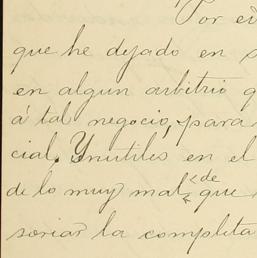 Por
que he dejado en
en algun arbitrio
á tal negocio, para
cial. Ynutiles en el
de lo muy mal de que
soriar la completa